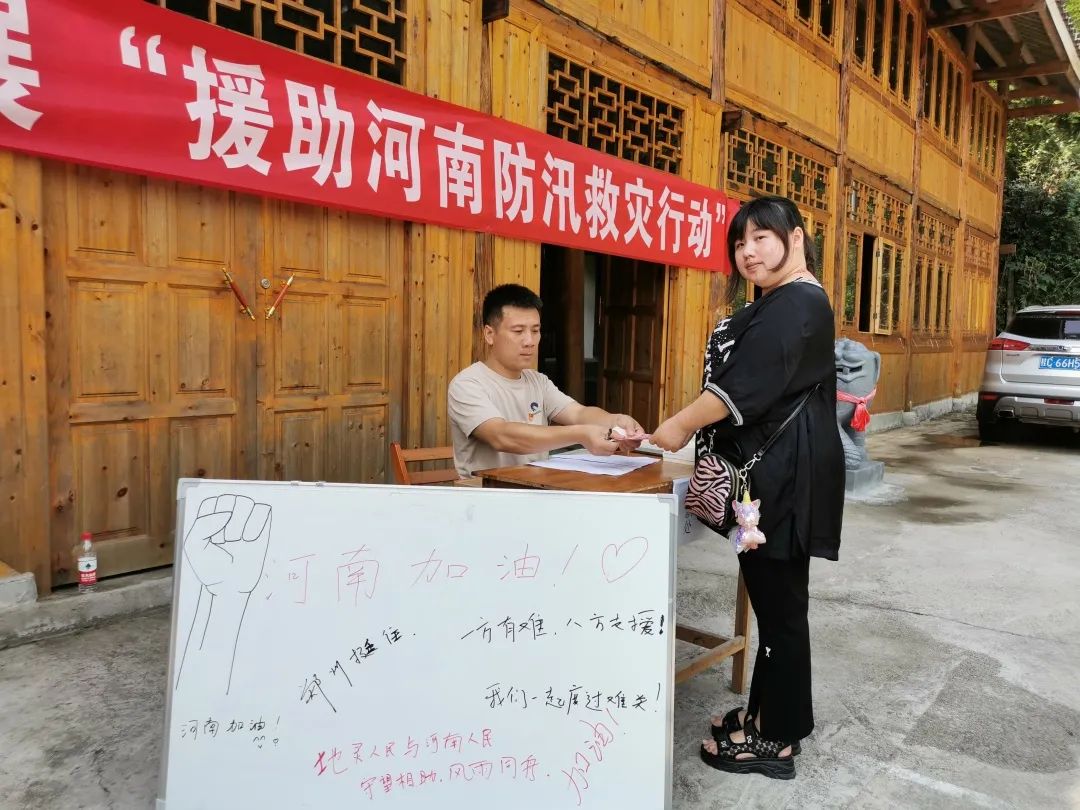 展“援助河南防汛救灾行动”
河南加油！
郑州挺住.
一方有难，八方支援！
我们一起度过难关！
河南加油！
地灵人民与河南人民
守望相助，风雨同舟.
加油！